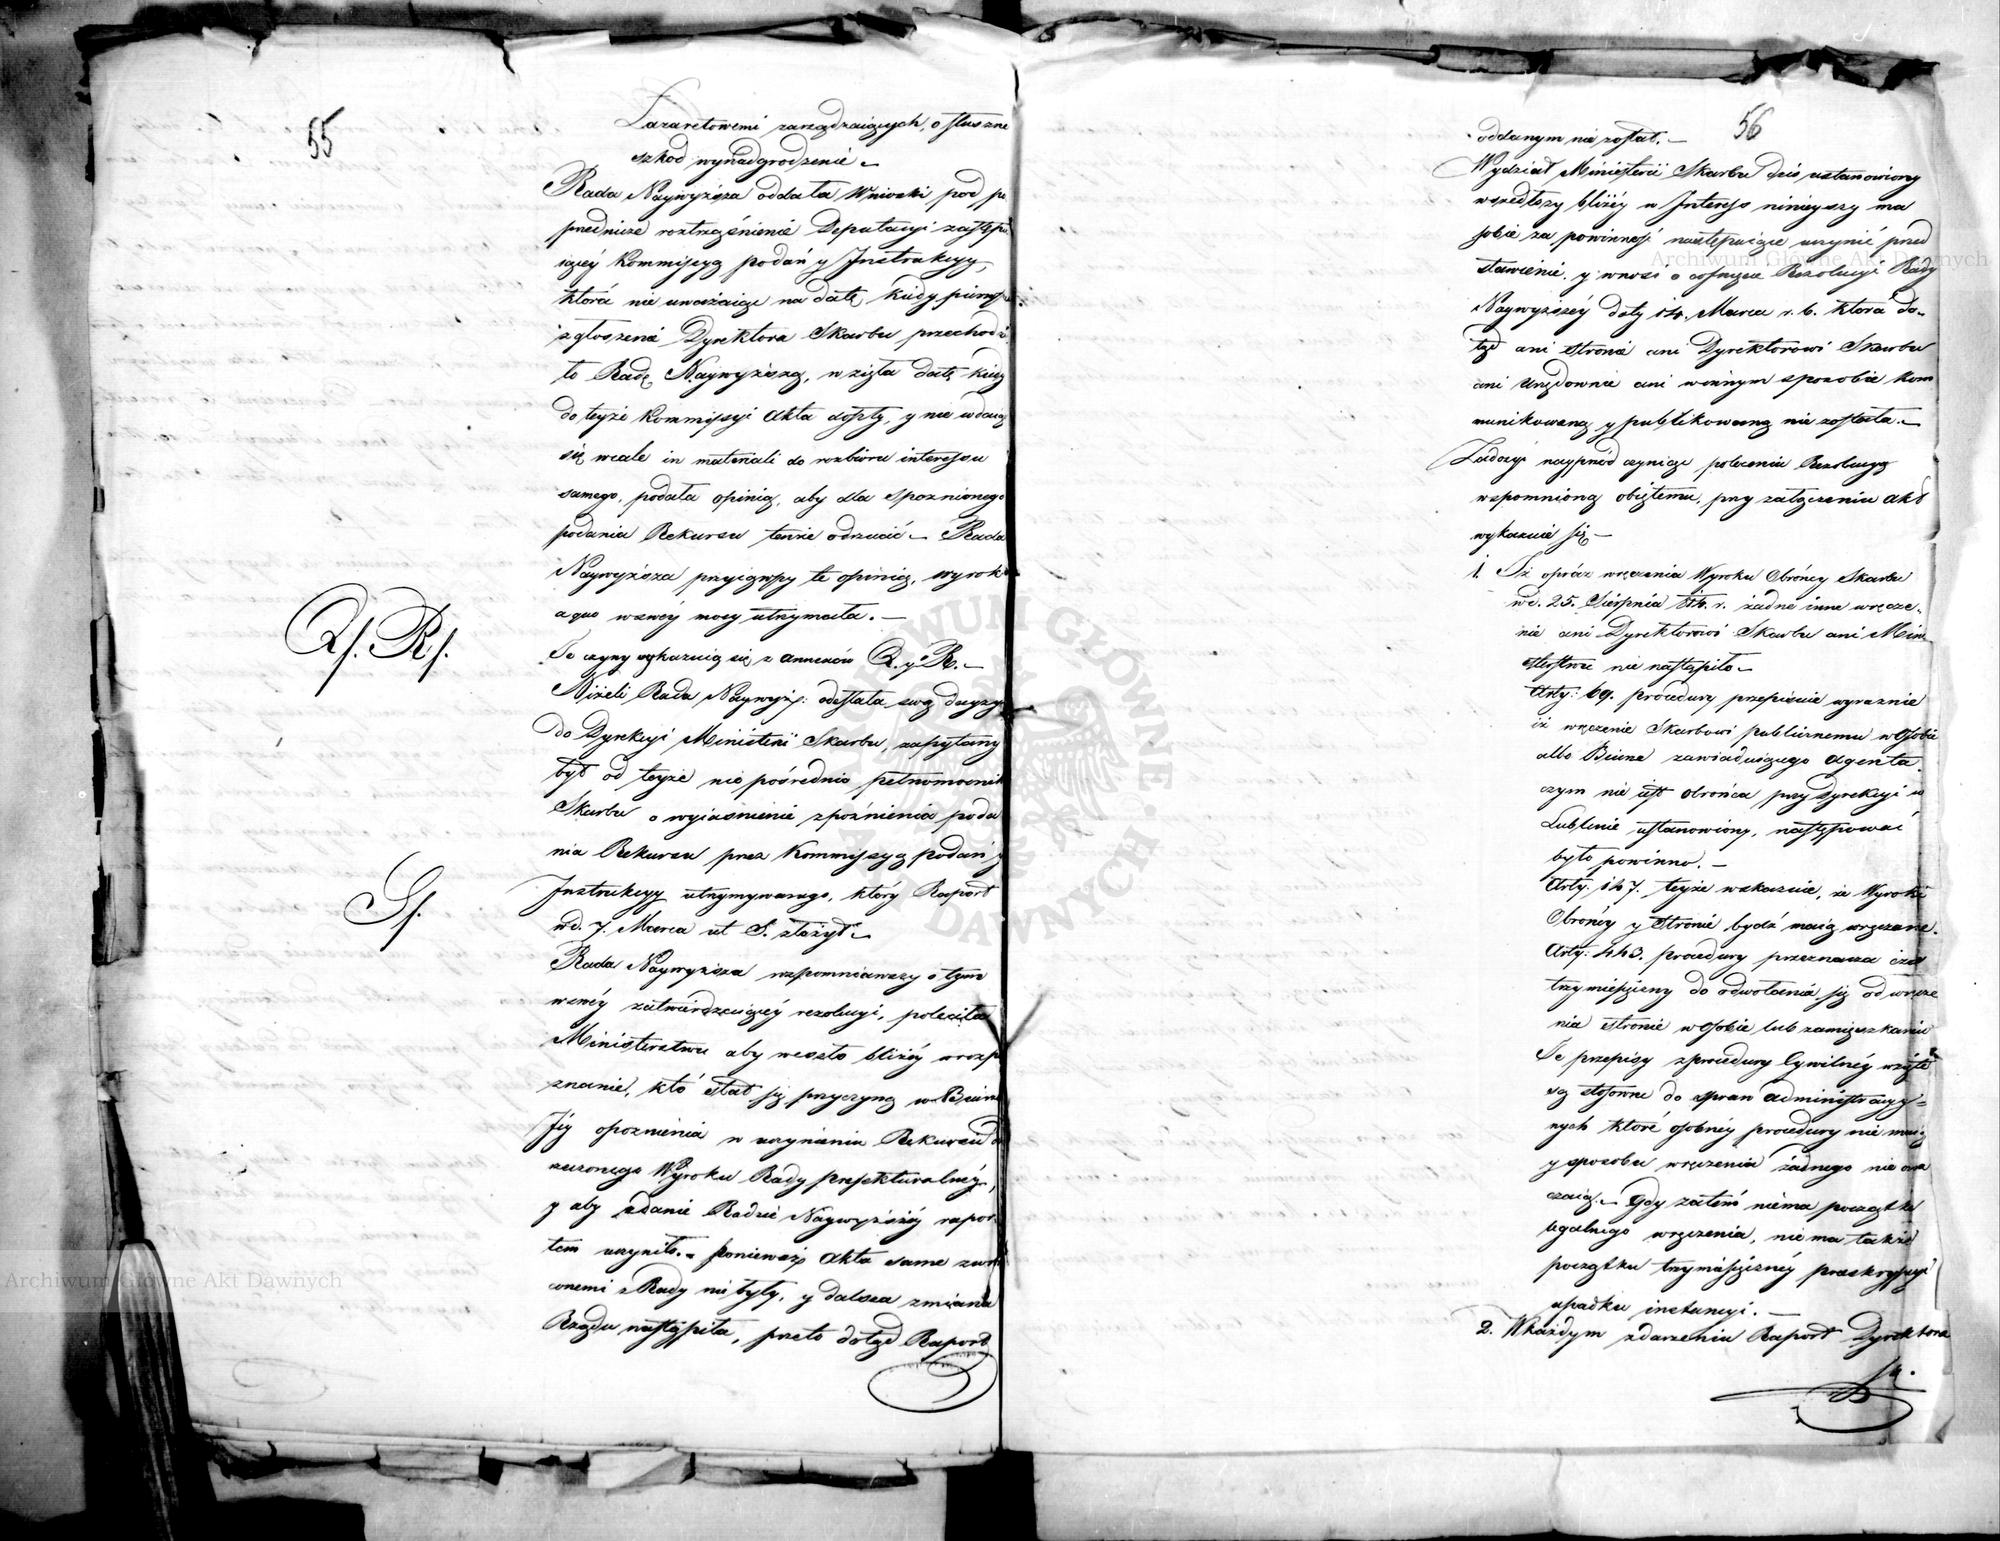 55
Lazaretowemi zarządzaiących, o słuszne
szkod wynadgrodzenie –
Rada Naywyższa oddała Wnioski pod po
przednicze roztrząśnienie Deputacyi zastępu
iącey Kommissyą podań y Instrukcyy,
która nie uważaiąc na datę kiedy pierwsze
zgłoszenie Dyrektora Skarbu przechodzi
to Radę Naywyższą, wzięła datę kiedy
do teyże Kommissyi Akta doszły, y nie wdaiąc
się wcale in materiali do rozbioru interessu
samego, podała opinią, aby dla spoznionego
podania Rekursu tenże odrzucić – Rada
Naywyższa przyiąwszy tę opinią, wyrok
a quo w swey mocy utrzymała. –
Q/. R/.
Te czyny wykazuią się z annexów Q. y R. –
Niżeli Rada Naywyż: odesłała swą decyzyą
do Dyrekcyi Ministerii Skarbu, zapytany
był od teyże nie pośrednio pełnomocnik
Skarbu o wyiasnienie zpóźnienia poda
nia Rekursu przez Kommissyą podań y
S/.
Instrukcyy utrzymywanego, który Raport
w d. 7. Marca ut S. złożył –
Rada Naywyższa wspomniawszy o tym
w swey zatwierdzaiącey rezolucyi, poleciła
Ministerstwu aby weszło bliżey w rozpo
znanie, kto stał się przyczyną w Biurze
Jey opoznienia w uczynieniu Rekursu do
rzeczonego Wyroku Rady prefekturalney,
y aby zdanie Radzie Naywyższey rapor
tem uczyniło. – ponieważ Akta same zwró
conemi z Rady nie były, y dalsza zmiana
Rządu nastąpiła, przeto dotąd Raport
56
oddanym nie został. –
Wydział Ministerii Skarbu dziś ustanowiony
wszedłszy bliżey w Interess ninieyszy ma
sobie za powinność następuiące uczynić przed
stawienie y wnosi o cofnięcie Rezolucyi Rady
Naywyższey daty 14. Marca r. b. która do-
tąd ani stronie ani Dyrektorowi Skarbu
ani Urzędownie ani w innym sposobie kom
munikowaną y publikowaną nie została. –
Zadosyć nayprzód czyniąc poleceniu Rezolucyą
wspomnioną obiętemu, przy załączeniu akt
wykazuie się –
1. Iż oprócz wręczenia Wyroku Obrońcy Skarbu
w d. 25. Sierpnia r. żadne inne wręcze-
nie ani Dyrektorowi Skarbu ani Mini
sterstwu nie nastąpiło –
Arty: 69. procedury przepisuie wyraznie
iż wręczenie Skarbowi publicznemu w Osobie
albo Biurze zawiaduiącego Agenta,
czym nie iest Obrońca przy Dyrekcyi w
Lublinie ustanowiony, następować
było powinno. –
Arty: 147. teyże wskazuie, że Wyroki
Obrońcy y Stronie bydź maią wręczane.
Arty: 443. procedury przeznacza czas
trzymiesięczny do odwołania się od wręcze
nia stronie w Osobie lub zamieszkaniu
Te przepisy z procedury Cywilney wzięte
są stosowne do spraw administracyy-
nych które osobney procedury nie maią
y sposobu wręczenia żadnego nie ozna
czaią. – Gdy zatem niema początku
legalnego wręczenia, nie ma także
początku trzymiesięczney preskrypcyi
upadku instancyi. –
2. W każdym zdarzeniu Raport Dyrektora
Archiwum Główne Akt Dawnych
Archiwum Główne Akt Dawnych
ARCHIWUM GŁÓWNE AKT DAWNYCH